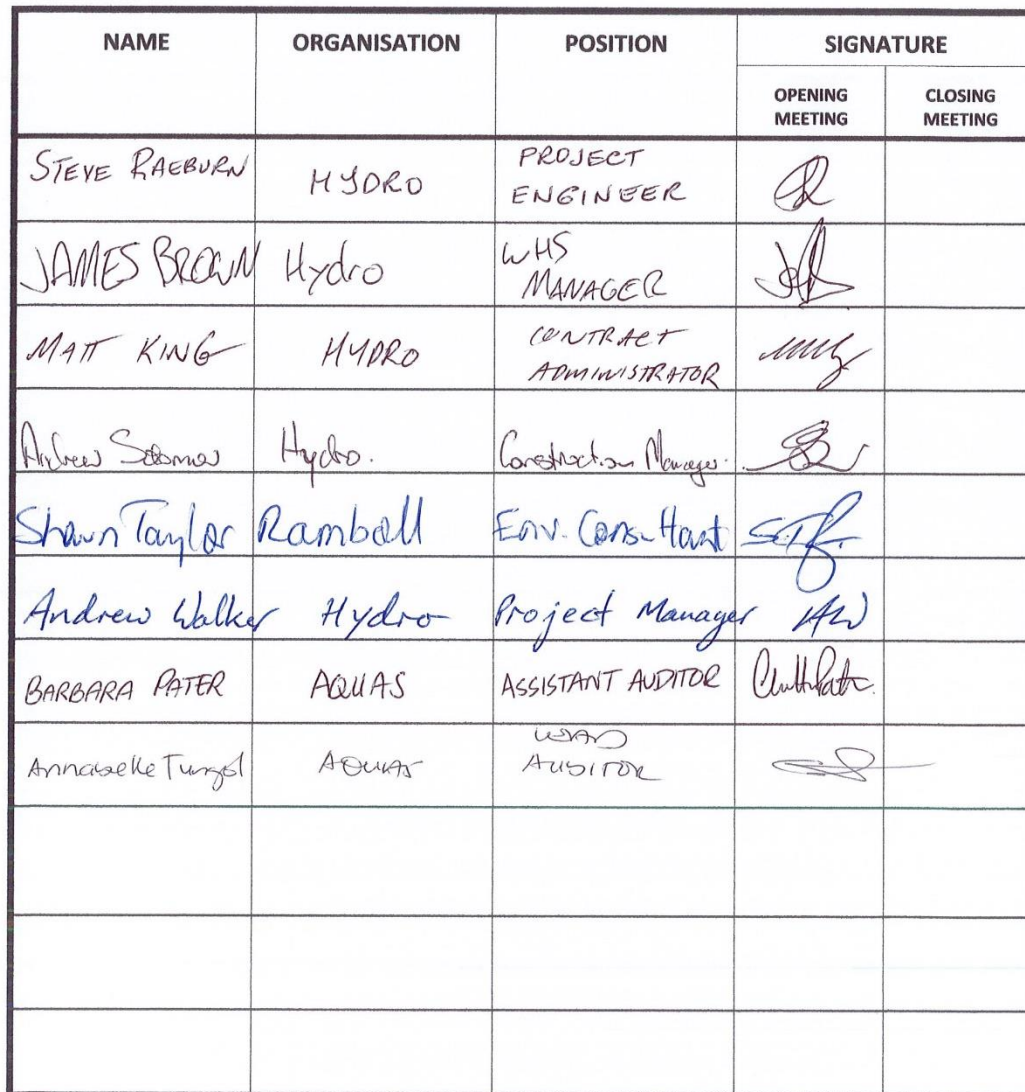 NAME ORGANISATION POSITION SIGNATURE
OPENING MEETING CLOSING MEETING
STEVE RAEBURN HYDRO PROJECT ENGINEER
JAMES BROWN Hydro WHS MANAGER
MATT KING HYDRO CONTRACT ADMINISTRATOR
Andrew Hydro. Construction Manager.
Shaun Taylor Ramboll Env. Consultant
Andrew Walker Hydro Project Manager AW
BARBARA PATER AQUAS ASSISTANT AUDITOR
Annabelle AQUAS LEAD AUDITOR